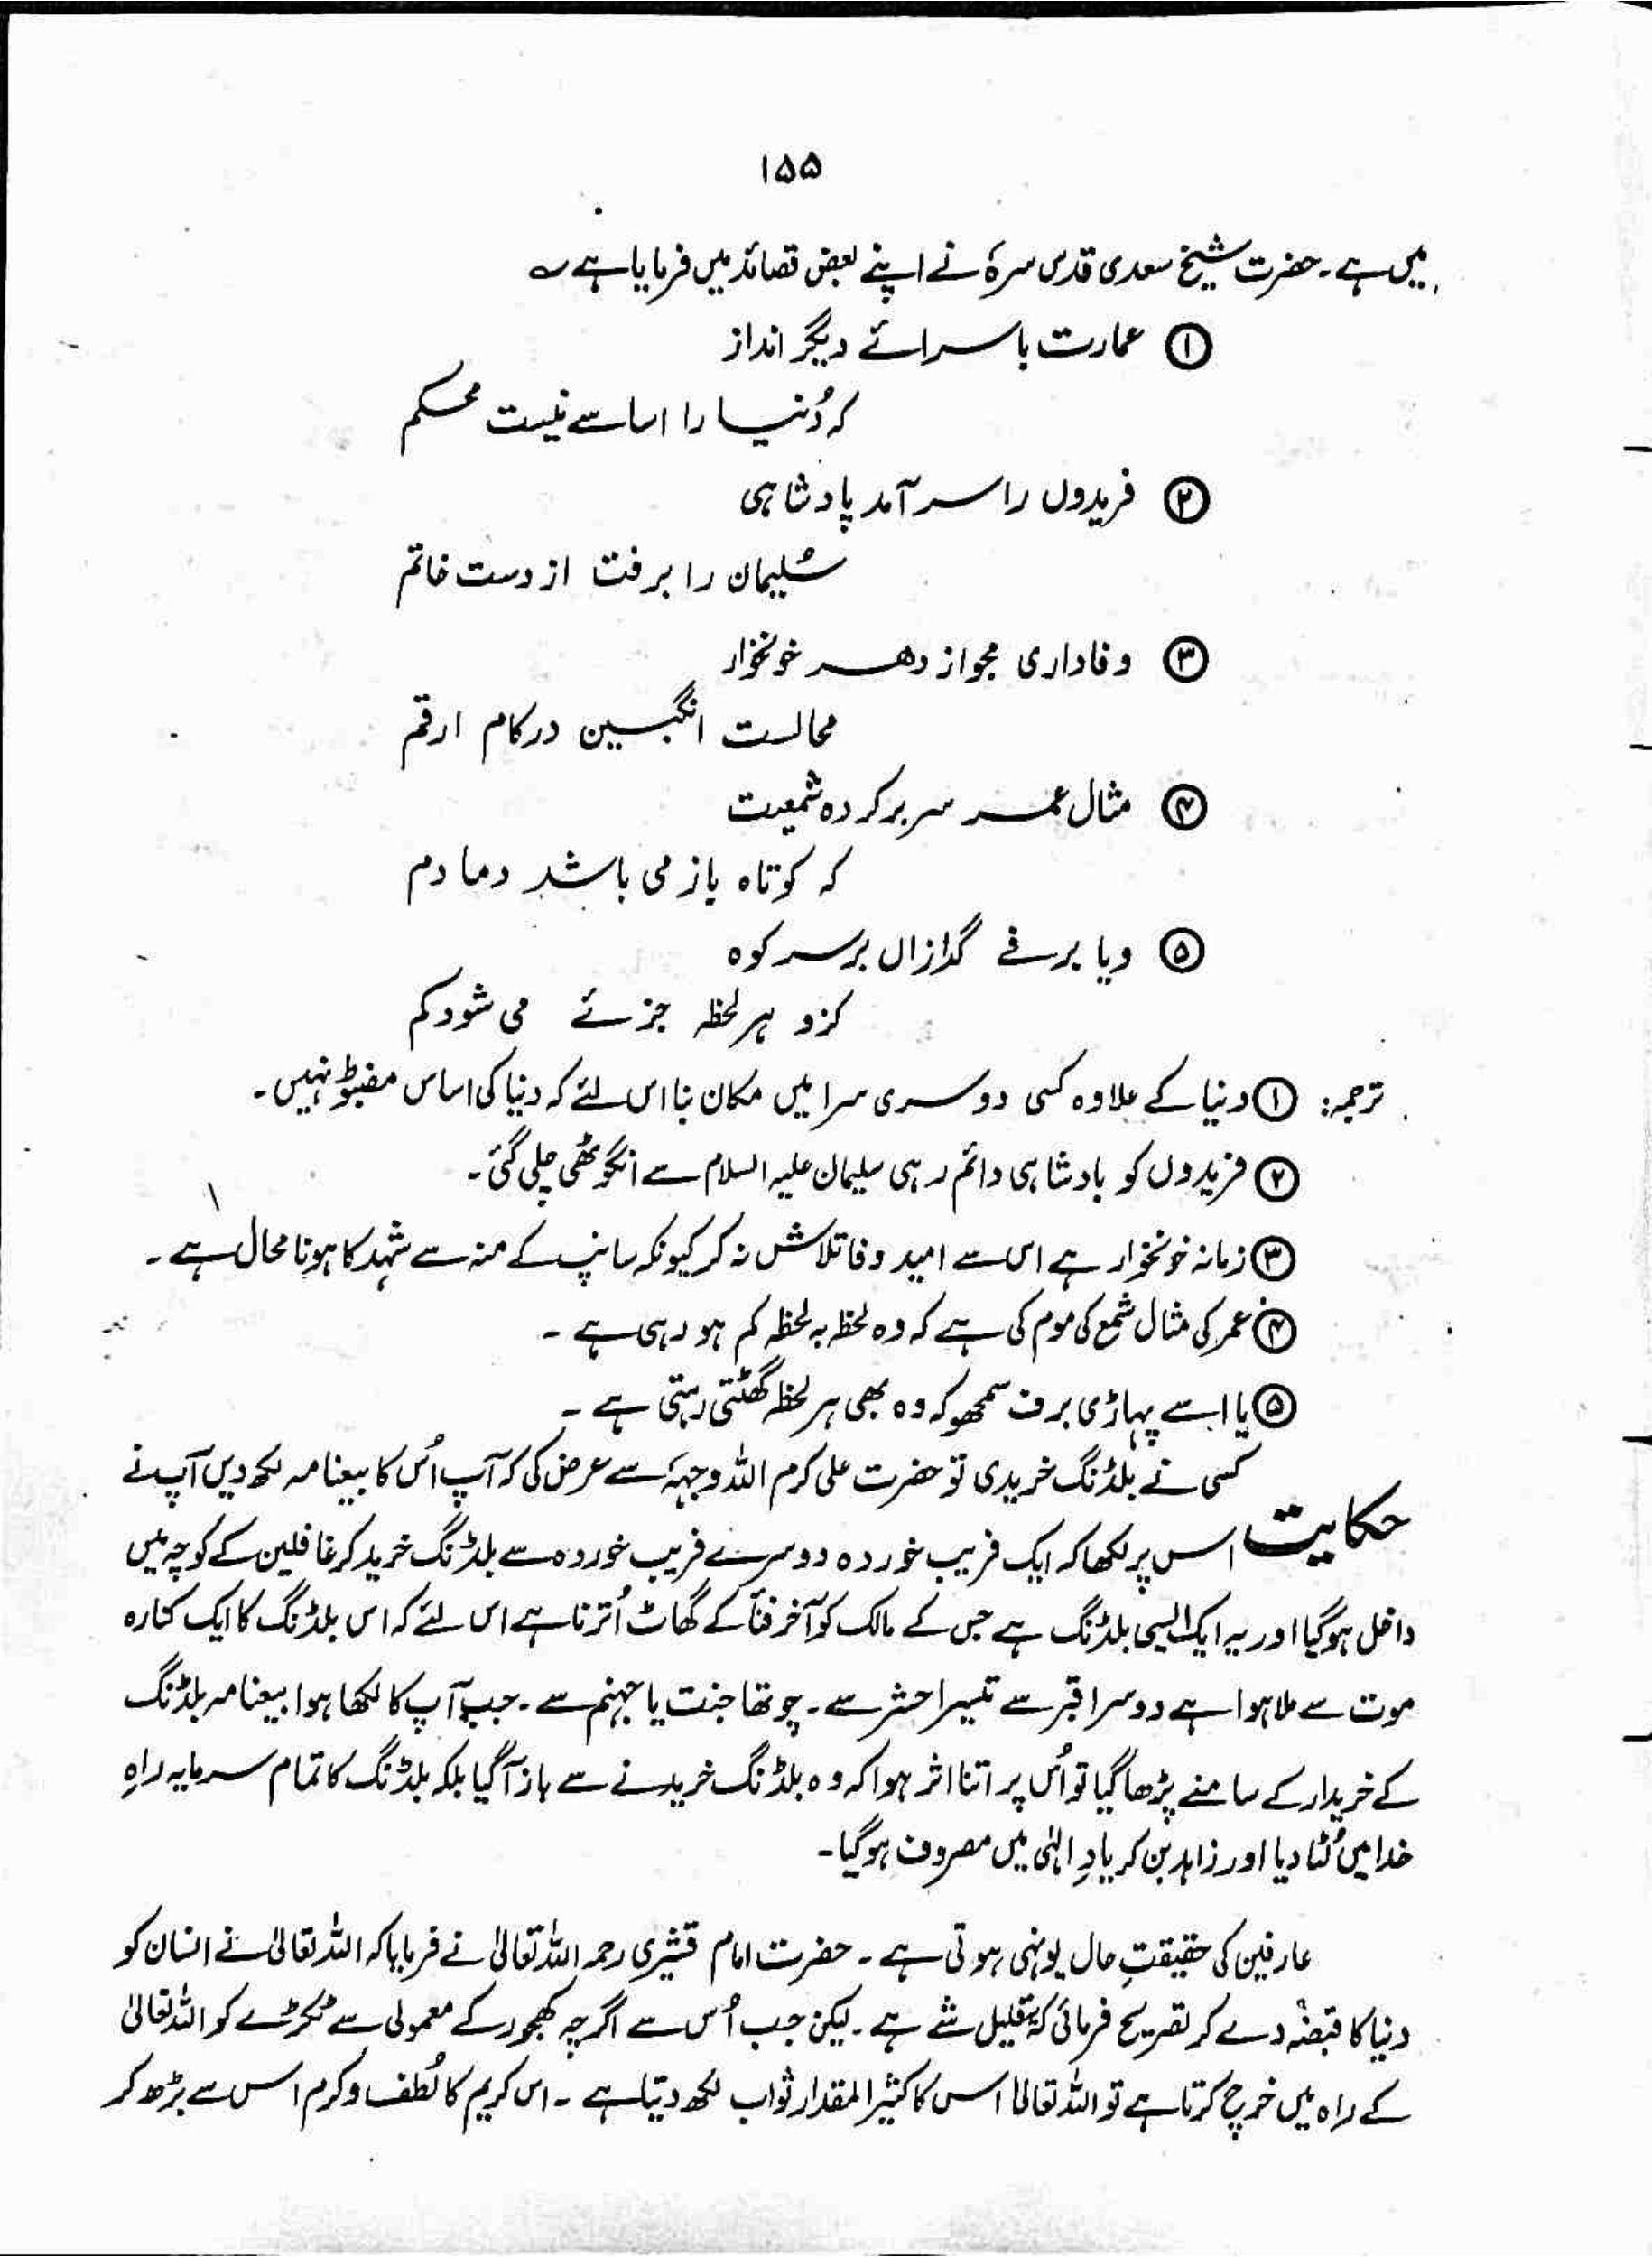 ۱۵۵
میں ہے۔ حضرت شیخ سعدی قدس سرہ نے اپنے بعض قصائد میں فرمایا ہے ؎
① عمارت باسرائے دیگر انداز
کہ دُنیا را اساسے نیست محکم
② فریدوں را سر آمد پادشاہی
سُلیمان را برفت از دست خاتم
③ وفاداری مجو از دھر خونخوار
محالست انگبین در کام ارقم
④ مثال عمر سر بر کردہ شمعیت
کہ کوتاہ باز می باشد دمادم
⑤ ویا برفے گدازاں برسر کوہ
کزو ہر لحظہ جزئے می شود کم
ترجمہ: ① دنیا کے علاوہ کسی دوسری سرا میں مکان بنا اس لئے کہ دنیا کی اساس مضبوط نہیں۔
② فریدوں کو بادشاہی دائم رہی سلیمان علیہ السلام سے انگوٹھی چلی گئی۔
③ زمانہ خونخوار ہے اس سے امید وفا تلاش نہ کر کیونکہ سانپ کے منہ سے شہد کا ہونا محال ہے۔
④ عمر کی مثال شمع کی موم کی ہے کہ وہ لحظہ بہ لحظہ کم ہو رہی ہے۔
⑤ یا اسے پہاڑی برف سمجھو کہ وہ بھی ہر لحظہ گھٹتی رہتی ہے۔
کسی نے بلڈنگ خریدی تو حضرت علی کرم اللہ وجہہٗ سے عرض کی کہ آپ اُس کا بیعنامہ لکھ دیں آپ نے
حکایت اس پر لکھا کہ ایک فریب خوردہ دوسرے فریب خوردہ سے بلڈنگ خرید کر غافلین کے کوچہ میں
داخل ہوگیا اور یہ ایک ایسی بلڈنگ ہے جس کے مالک کو آخر فنا کے گھاٹ اُترنا ہے اس لئے کہ اس بلڈنگ کا ایک کنارہ
موت سے ملا ہوا ہے دوسرا قبر سے تیسرا حشر سے۔ چوتھا جنت یا جہنم سے۔ جب آپ کا لکھا ہوا بیعنامہ بلڈنگ
کے خریدار کے سامنے پڑھا گیا تو اُس پر اتنا اثر ہوا کہ وہ بلڈنگ خریدنے سے باز آگیا بلکہ بلڈنگ کا تمام سرمایہ راہِ
خدا میں لُٹا دیا اور زاہد بن کر یادِ الٰہی میں مصروف ہوگیا۔
عارفین کی حقیقتِ حال یونہی ہوتی ہے۔ حضرت امام قشیری رحمہ اللہ تعالیٰ نے فرمایا کہ اللہ تعالیٰ نے انسان کو
دنیا کا قبضہ دے کر تصریح فرمائی کہ یہ قلیل شے ہے۔ لیکن جب اُس سے اگرچہ کھجور کے معمولی سے ٹکڑے کو اللہ تعالیٰ
کے راہ میں خرچ کرتا ہے تو اللہ تعالیٰ اس کا کثیر المقدار ثواب لکھ دیتا ہے۔ اس کریم کا لُطف و کرم اس سے بڑھ کر